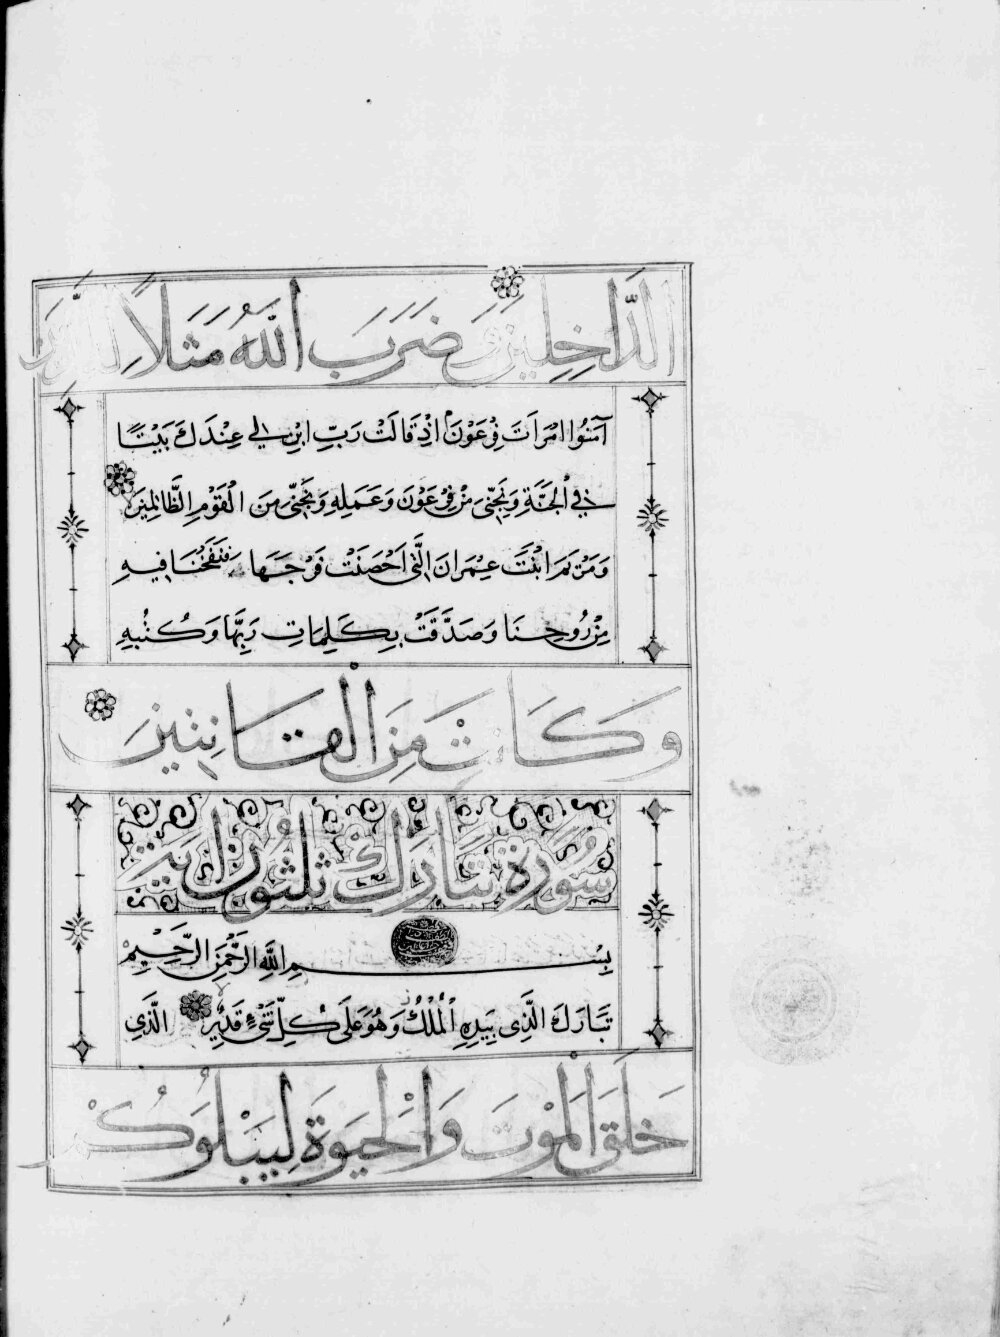 الدَّاخِلِينَ ضَرَبَ اللَّهُ مَثَلًا لِلَّذِينَ
آمَنُوا امْرَاَتَ فِرْعَوْنَ اِذْ قَالَتْ رَبِّ ابْنِ لِي عِنْدَكَ بَيْتًا
فِي الْجَنَّةِ وَنَجِّنِي مِنْ فِرْعَوْنَ وَعَمَلِهِ وَنَجِّنِي مِنَ الْقَوْمِ الظَّالِمِينَ
وَمَرْيَمَ ابْنَتَ عِمْرَانَ الَّتِي اَحْصَنَتْ فَرْجَهَا فَنَفَخْنَا فِيهِ
مِنْ رُوحِنَا وَصَدَّقَتْ بِكَلِمَاتِ رَبِّهَا وَكُتُبِهِ
وَكَانَتْ مِنَ الْقَانِتِينَ
سُورَةُ تَبَارَكَ ثلثون اية
بِسْمِ اللَّهِ الرَّحْمَنِ الرَّحِيمِ
تَبَارَكَ الَّذِي بِيَدِهِ الْمُلْكُ وَهُوَ عَلَى كُلِّ شَيْءٍ قَدِيرٌ الَّذِي
خَلَقَ الْمَوْتَ وَالْحَيَوةَ لِيَبْلُوَكُمْ